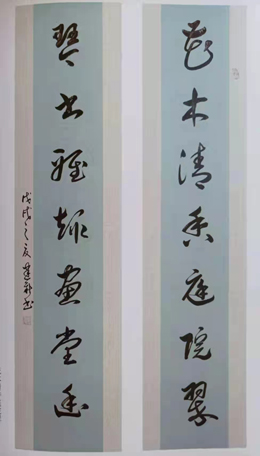 花木清香庭院翠
琴书雅趣画堂幽
戊戌之夏建新书